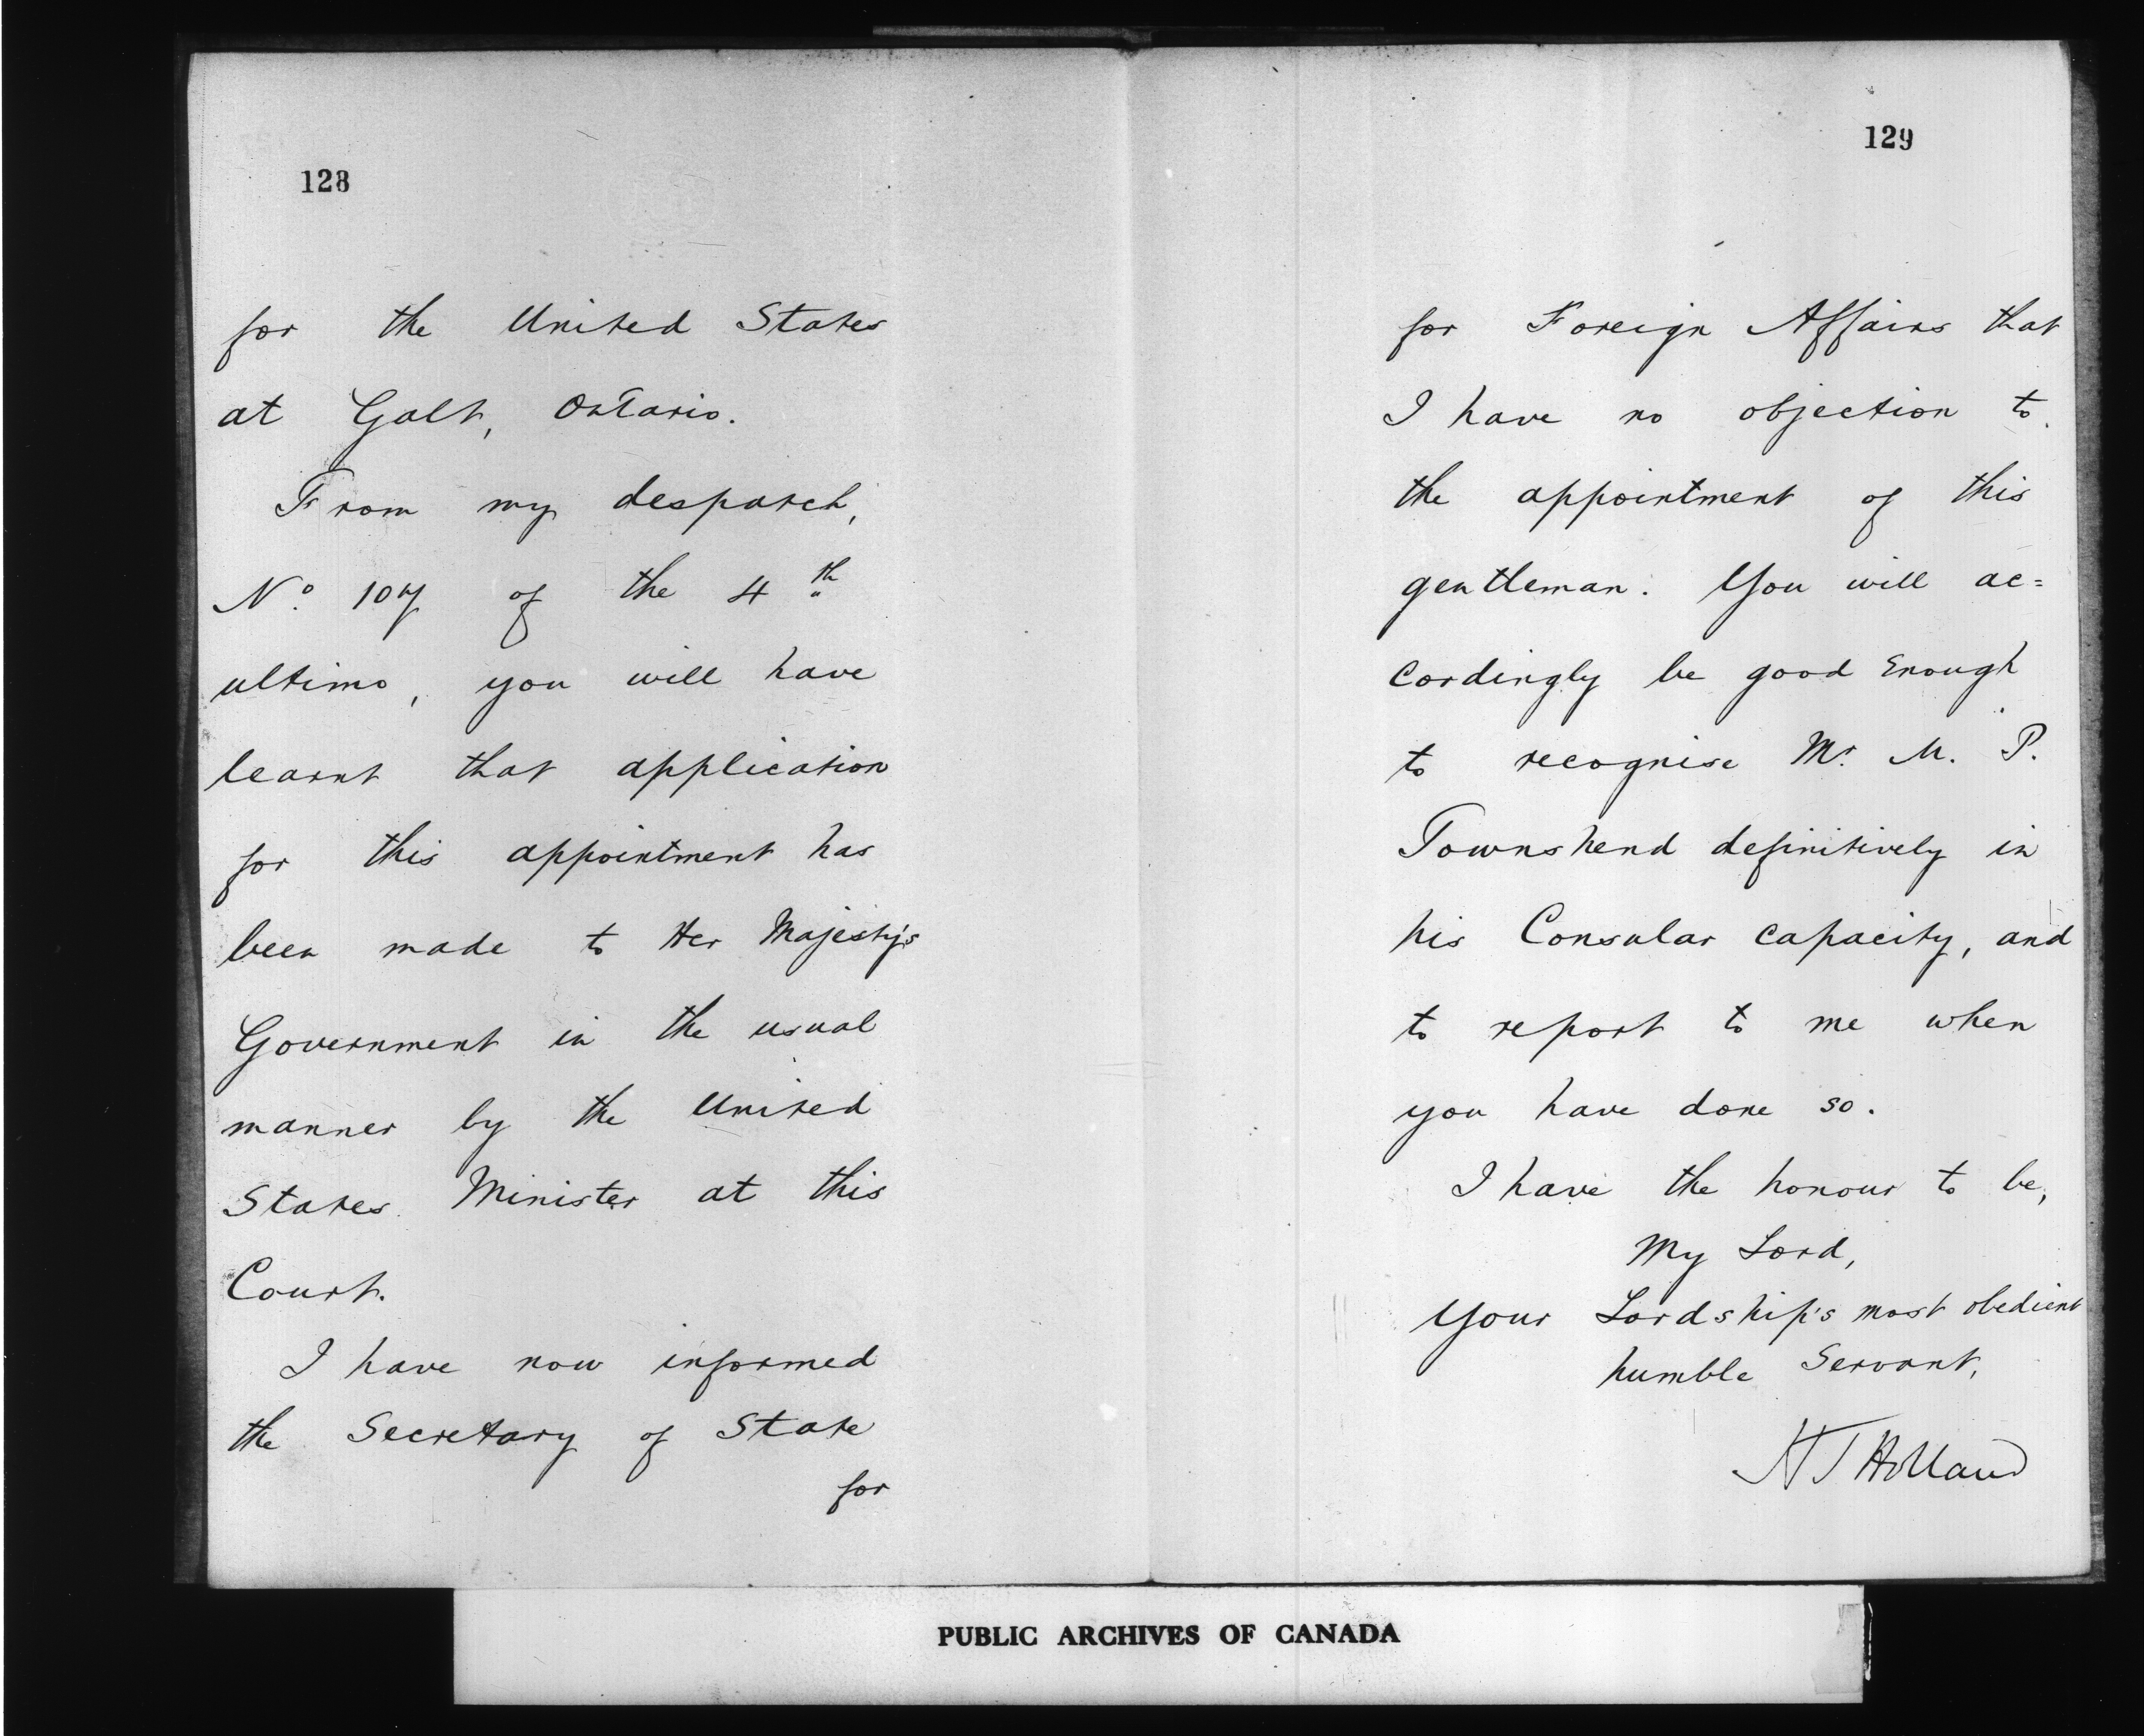 128
for the United States
at Galt, Ontario.
From my despatch,
No. 107 of the 4th
ultimo, you will have
learnt that application
for this appointment has
been made to Her Majesty's
Government in the usual
manner by the United
States Minister at this
Court.
I have now informed
the Secretary of State
for
129
for Foreign Affairs that
I have no objection to
the appointment of this
gentleman. You will ac=
cordingly be good enough
to recognise Mr. M. P.
Townshend definitively in
his Consular capacity, and
to report to me when
you have done so.
I have the honour to be,
My Lord,
Your Lordship's most obedient
humble Servant,
H T Holland
PUBLIC ARCHIVES OF CANADA